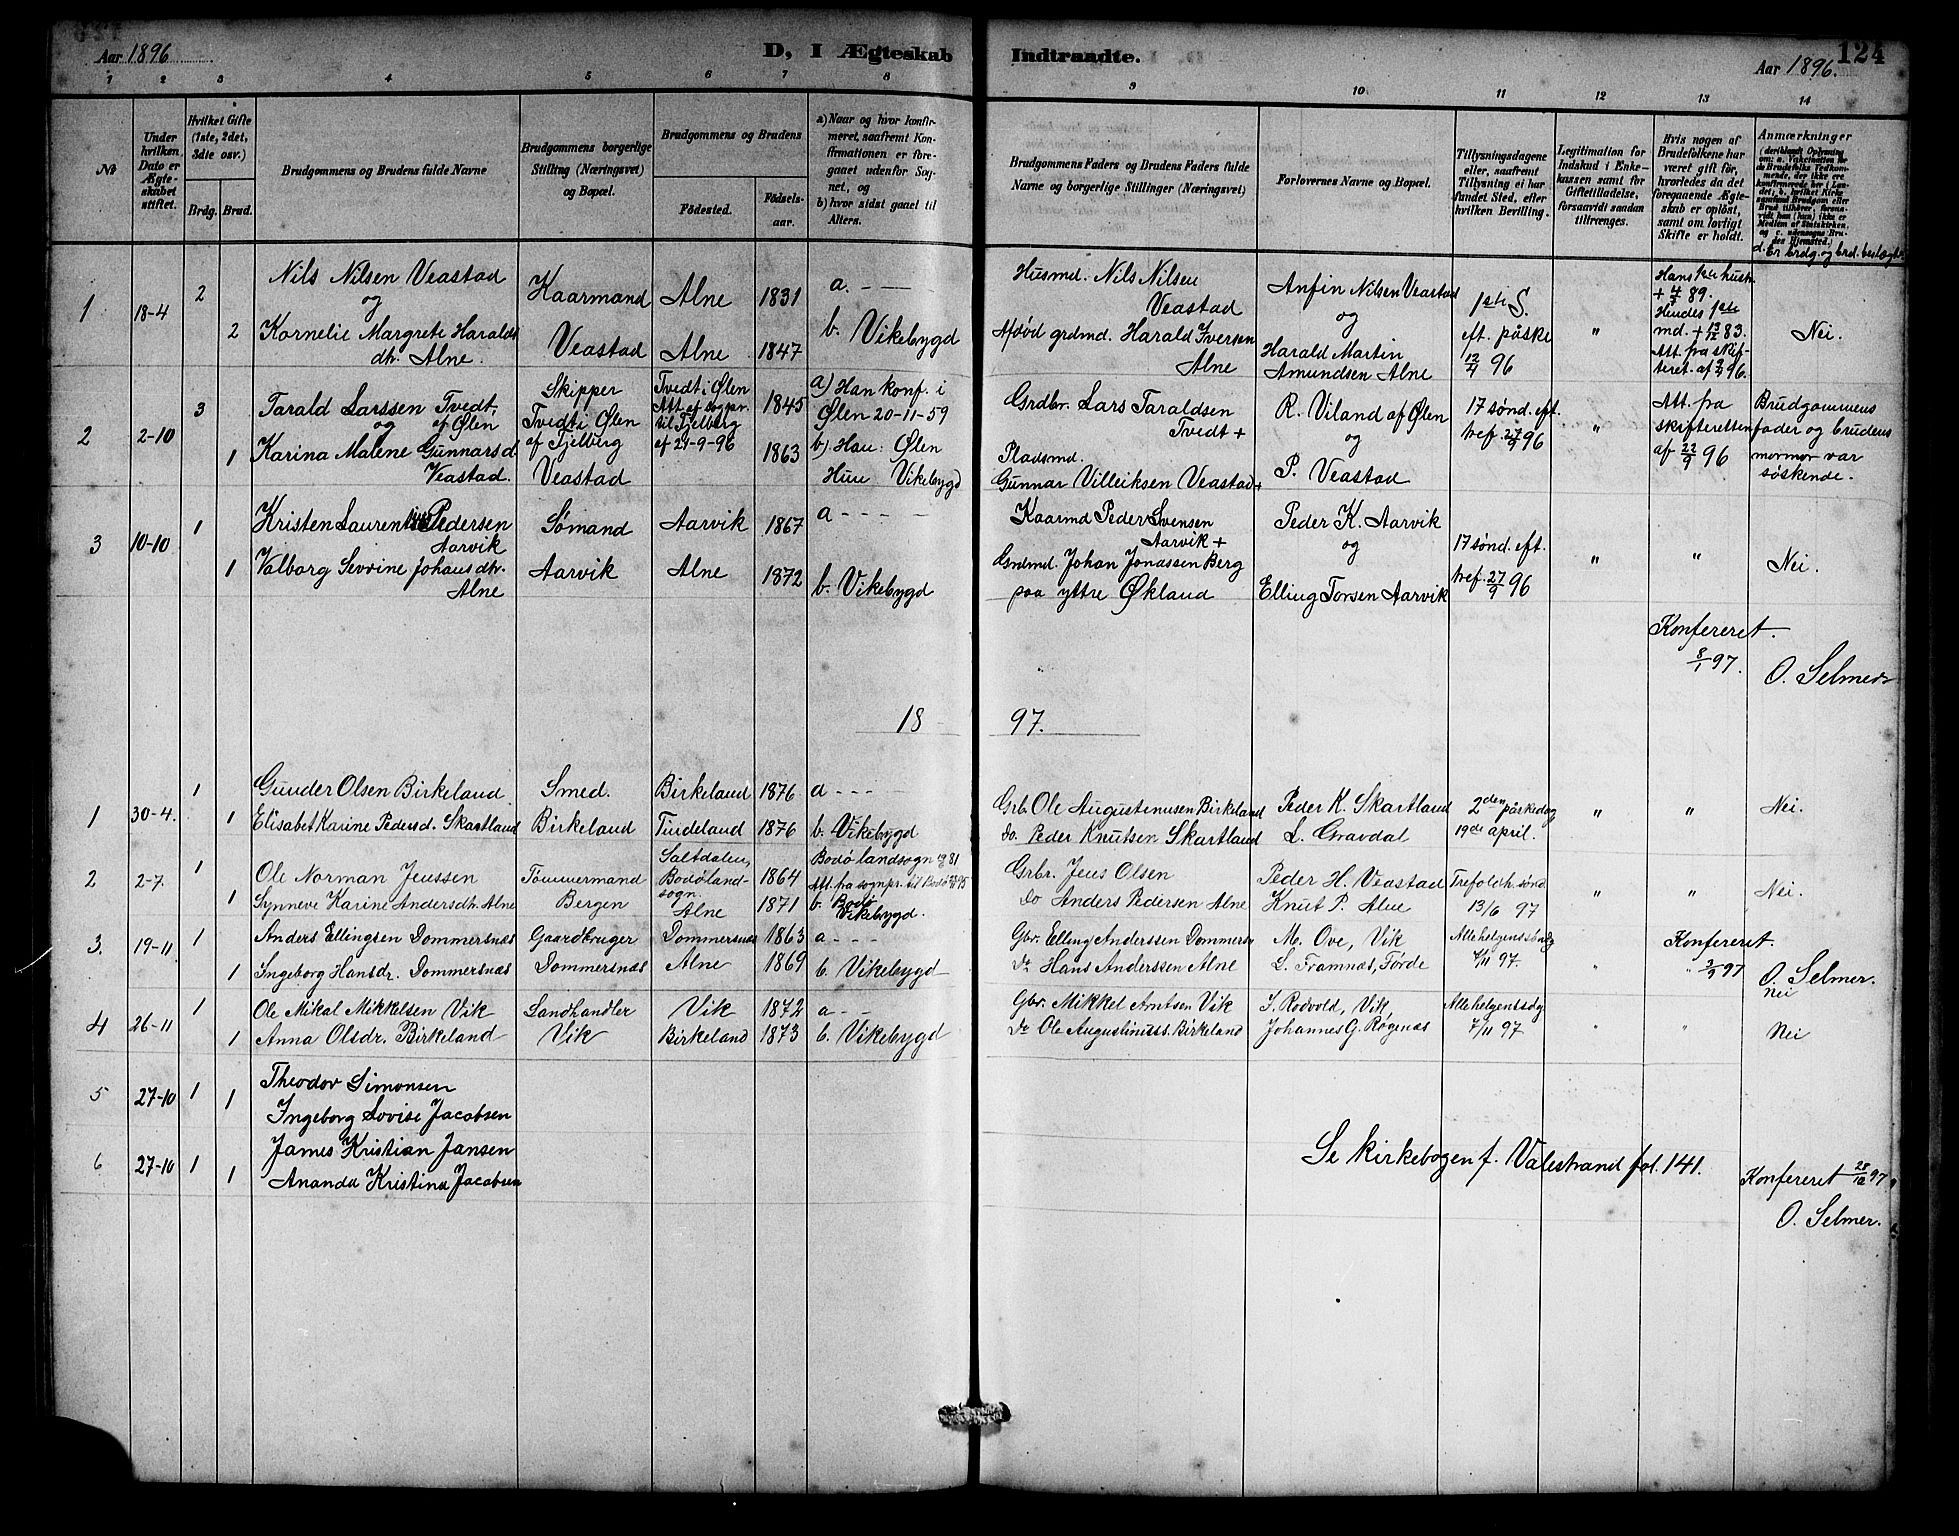 Aar 1896
D, I Ægteskab Indtraadte.
124
Aar 1896.
1 2 3 4 5 6 7 8 9 10 11 12 13 14
Nr
Under hvilken Dato er Ægteskabet stiftet.
Hvilket Gifte (1ste, 2det, 3die osv.)
Brdg. Brud.
Brudgommens og Brudens fulde Navne
Brudgommens borgerlige Stilling (Næringsvei) og Bopæl.
Brudgommens og Brudens
Födested. Födselsaar.
a) Naar og hvor konfirmeret, saafremt Konfirmationen er foregaaet udenfor Sognet, og
b) hvor sidst gaaet til Alters.
Brudgommens Faders og Brudens Faders fulde Navne og borgerlige Stillinger (Næringsvei)
Forlovernes Navne og Bopæl.
Tillysningsdagene eller, saafremt Tillysning ei har fundet Sted, efter hvilken Bevilling.
Legitimation for Indskud i Enkekassen samt for Giftetilladelse, forsaavidt saadan tiltrænges.
Hvis nogen af Brudefolkene har været gift för, hvorledes da det foregaaende Ægteskab er oplöst, samt om lovligt Skifte er holdt.
Anmærkninger
d. Er brdg. og brd. beslægtet
1 18-4 2 Nils Nilsen Veastad Kaarmand Alne 1831 a. — Husmd. Nils Nilsen Veastad Anfin Nilsen Veastad 1ste S. Hans 1ste hustr. + 4/5 89.
og og eft. påske " Hindes 1ste md. + 13/12 83. Nei.
2 Kornelie Margrete Haralds dtr. Alne. Veastad Alne 1847 b. Vikebygd Afdød grdmd. Harald Iversen Alne Harald Martin Amundsen Alne 12/4 96 Att. fra skifteret. af 9/4 96.
2 2-10 3 Tarald Larssen Tvedt, af Ølen Skipper Tvedt i Ølen 1845 a) Han konf. i Ølen 20-11-59 Grdbr. Lars Taraldsen Tvedt + R. Viland af Ølen 17 sønd. eft. tref. 27/9 96 " Att. fra skifteretten af 22/9 96 Brudgommens fader og brudens mormor var søskende.
og Tvedt i Ølen af Fjelberg Att. af sognpr. til Fjelberg af 21-9-96 og
1 Karina Malene Gunnarsd. Veastad. Veastad 1863 b) Han: Ølen Hun Vikebygd Pladsmd. Gunnar Villeiksen Veastad + P. Veastad
3 10-10 1 Kristen Laurentius Pedersen Aarvik Sømand Aarvik 1867 a - - - Kaarmd Peder Svensen Aarvik + Peder K. Aarvik 17 sønd. eft. " " Nei.
1 Valborg Sevrine Johansdtr. Alne Aarvik Alne 1872 b. Vikebygd Grdmd. Johan Jonassen Berg paa yttre Økland og Elling Torsen Aarvik tref. 27/9 96
Konfereret.
8/1 97.
O. Selmer
1897.
1 30-4. 1 Gunder Olsen Birkeland Smed. Birkeland 1876 a - - - Grb. Ole Augustenusen Birkeland Peder K. Skartland 2den påskedag " " Nei.
1 Elisabet Karine Pedersd. Skartland Birkeland Tindeland 1876 b. Vikebygd Do. Peder Knutsen Skartland L. Gravdal 19de april.
2 2-7. 1 Ole Norman Jenssen Tømmermand Saltdalen, Bodølandsogn 1864 Bodølandsogn 81 Grbr. Jens Olsen Peder H. Veastad Trefoldh. sønd " " Nei.
1 Synneve Karine Andersdtr. Alne Bergen Alne 1871 b. Bodø Vikebygd. Do Anders Pedersen Alne Knut P. Alne 13/6 97
3. 19-11 1 Anders Ellingsen Dommersnæs Gaardbruger Dommersnæs 1863 a - - - Gbr. Elling Anderssen Dommersn. M. Ove, Vik Allehelgenssøndag Konfereret.
1 Ingeborg Hansdr. Dommersnæs Dommersnæs Alne 1869 b. Vikebygd Do Hans Anderssen Alne L. Framnæs, Førde 7/11 97. " " 3/9 97 O. Selmer.
nei
4 26-11 1 Ole Mikal Mikkelsen Vik Landhandler Vik 1872 a - - Gbr. Mikkel Arntsen Vik I. Rødvold, Vik Allehelgensdg
1 Anna Olsdr. Birkeland Vik Birkeland 1873 b. Vikebygd Do Ole Augustinuss. Birkeland Johannes G. Røgenæs 7/11 97. " " Nei
5 27-10 1 1 Theodor Simonsen
Ingeborg Lovise Jacobsen
6 27-10 1 1 James Kristian Jansen
Ananda Kristina Jacobsen
Se kirkebogen f. Valestrand fol. 141.
Konfereret 28/12 97.
O. Selmer.